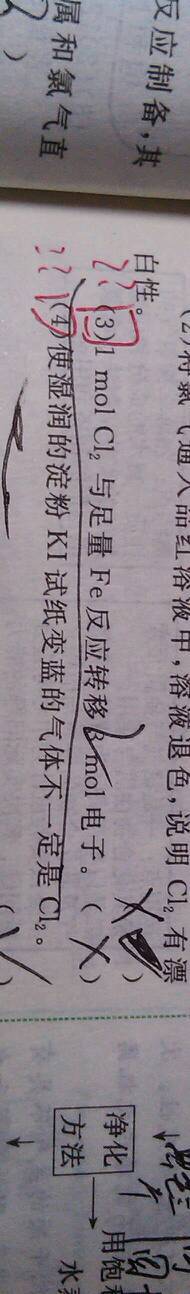 反应制备,其
属和氯气直
)
(2)将氯气通入品红溶液中,溶液退色,说明Cl₂有漂
白性。
(3)1 mol Cl₂与足量Fe反应转移3 mol电子。(×)
(4)使湿润的淀粉KI试纸变蓝的气体不一定是Cl₂。
(√)
??
??
净化
方法
用饱
水